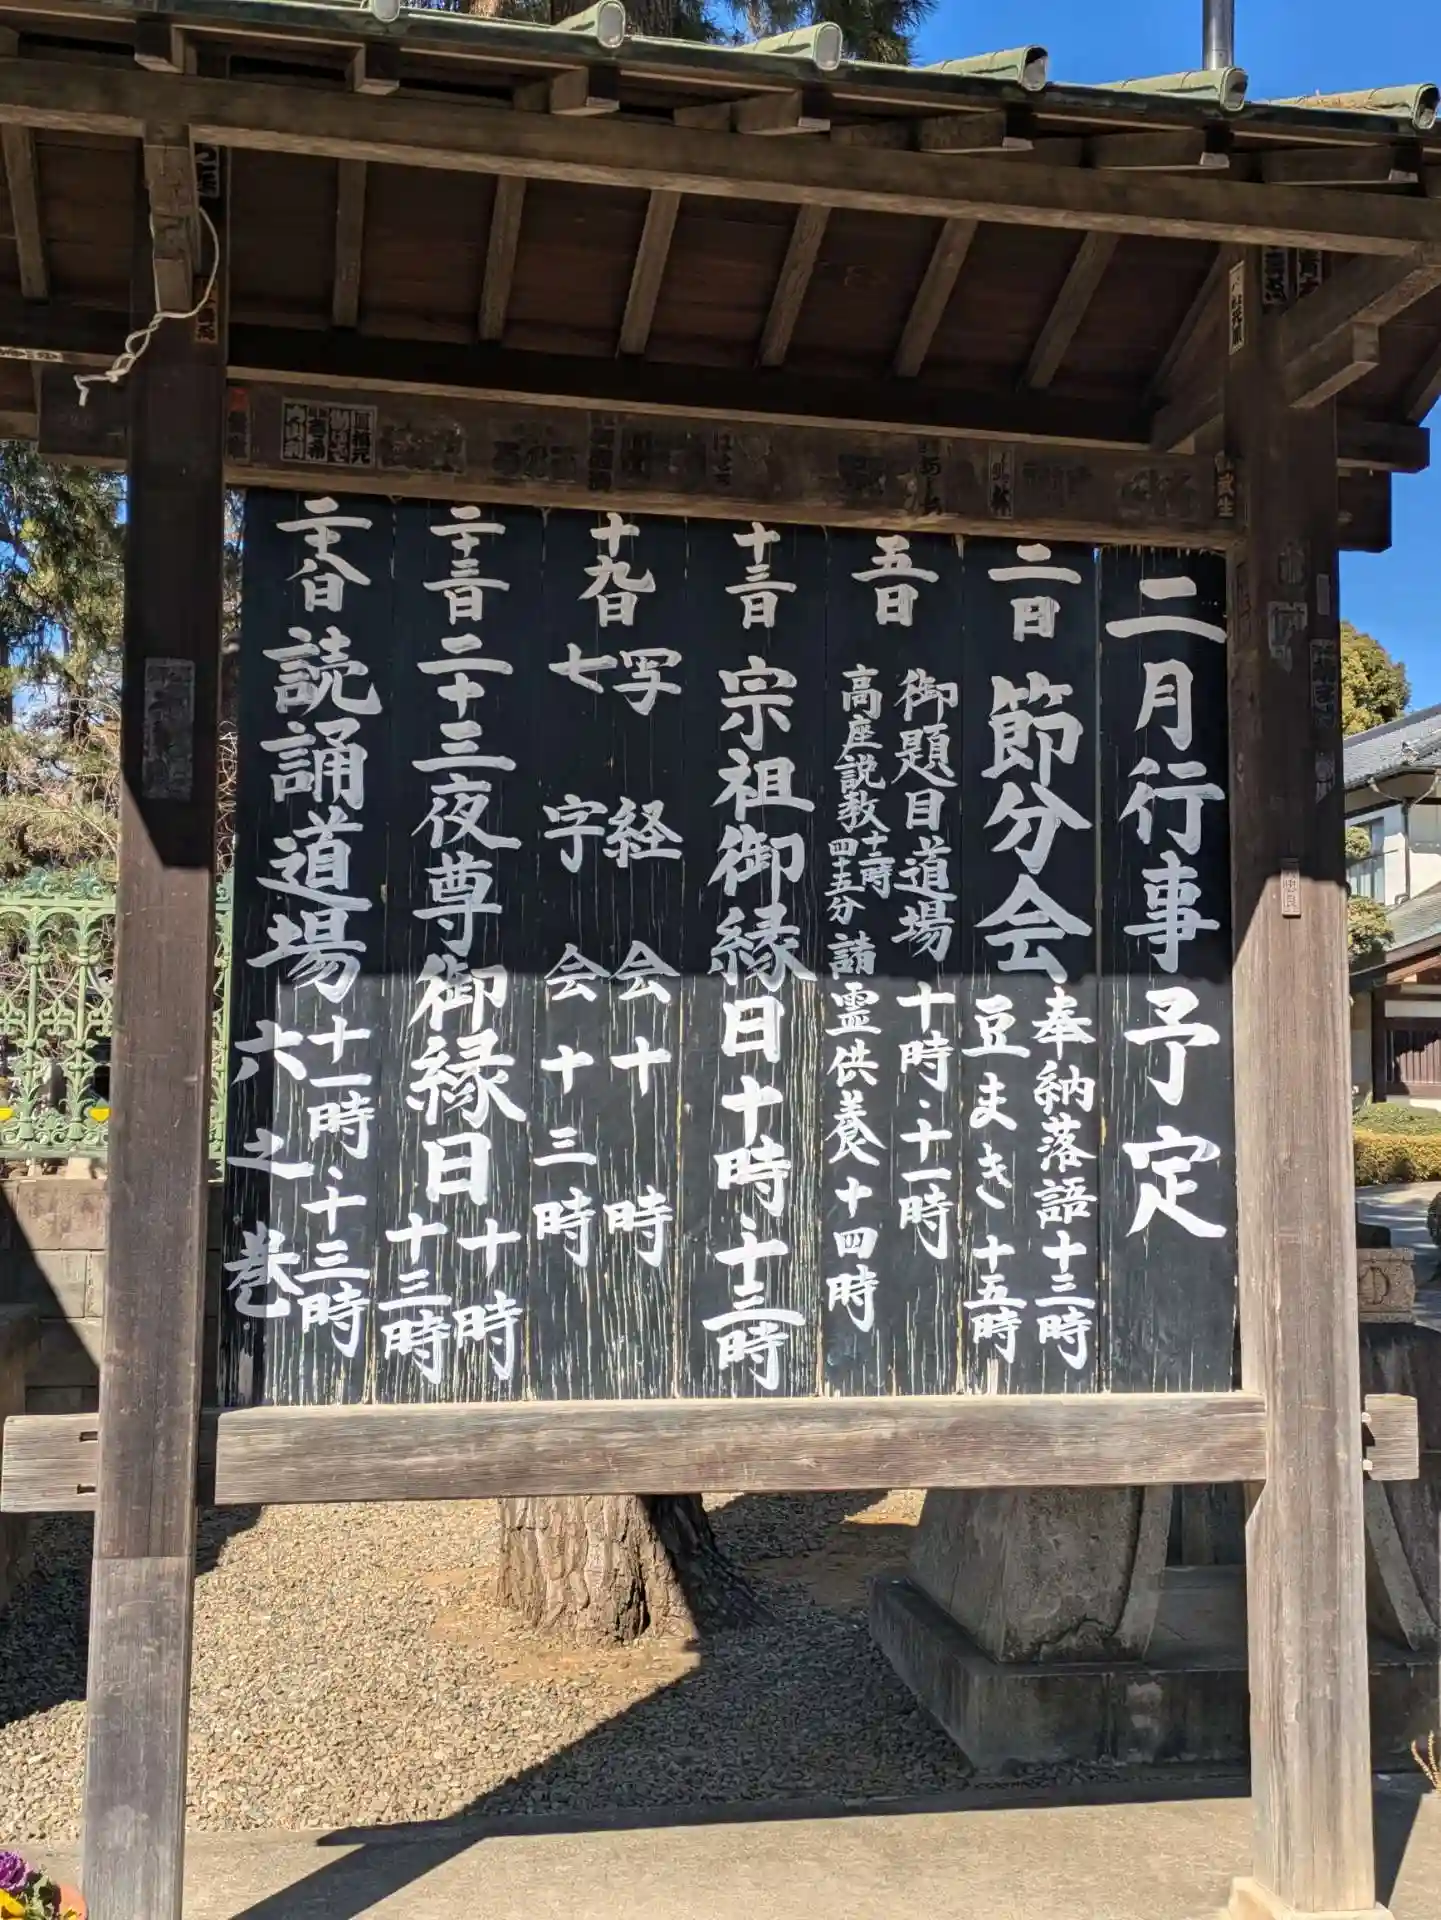 二月行事予定
二日
節分会
奉納落語十三時
豆まき十五時
五日
御題目道場十時・十一時
高座説教十二時四十五分
諸霊供養十四時
十三日
宗祖御縁日十時・十三時
十九日
写経会十時
七字会十三時
二十三日
二十三夜尊御縁日
十時
十三時
二十八日
読誦道場
十一時・十三時
六之巻